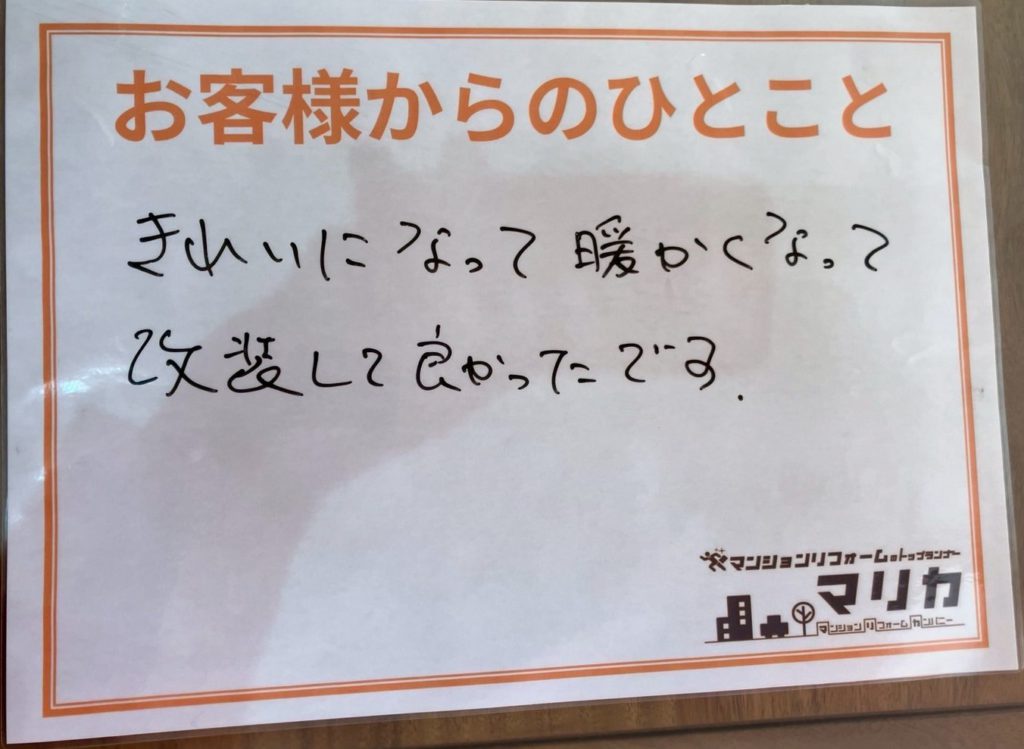 お客様からのひとこと
きれいになって暖かくなって
改装して良かったです.
マンションリフォームのトップランナー
マリカ
マンションリフォームカンパニー